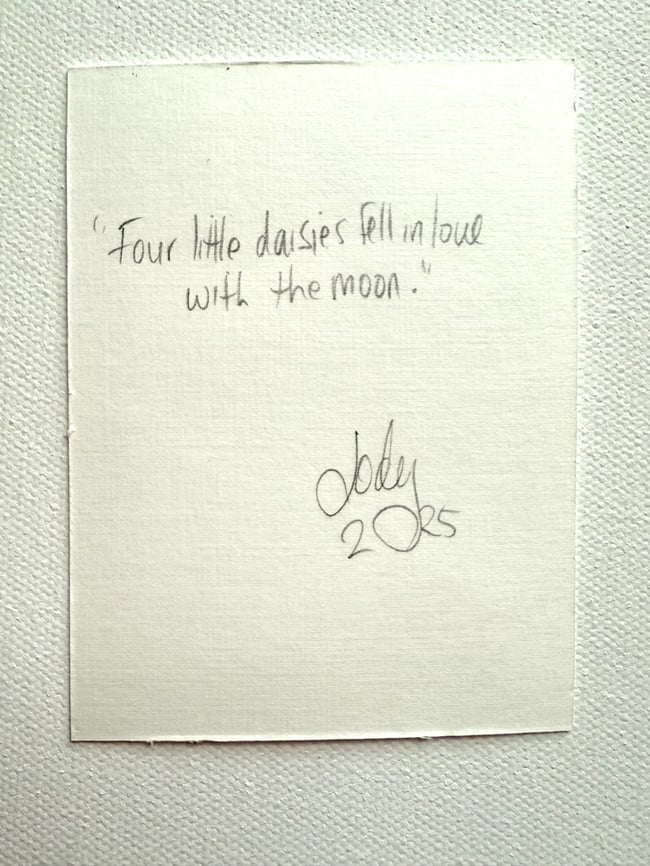 "Four little daisies fell in love
with the moon."
Jody
2025